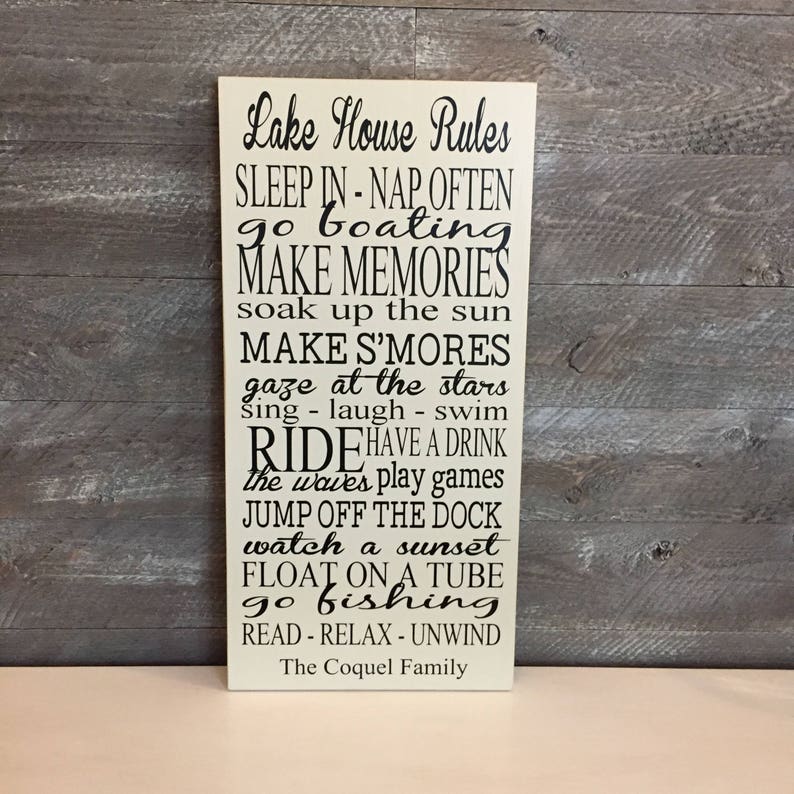 Lake House Rules
SLEEP IN - NAP OFTEN
go boating
MAKE MEMORIES
soak up the sun
MAKE S'MORES
gaze at the stars
sing - laugh - swim
RIDE HAVE A DRINK
the waves play games
JUMP OFF THE DOCK
watch a sunset
FLOAT ON A TUBE
go fishing
READ - RELAX - UNWIND
The Coquel Family